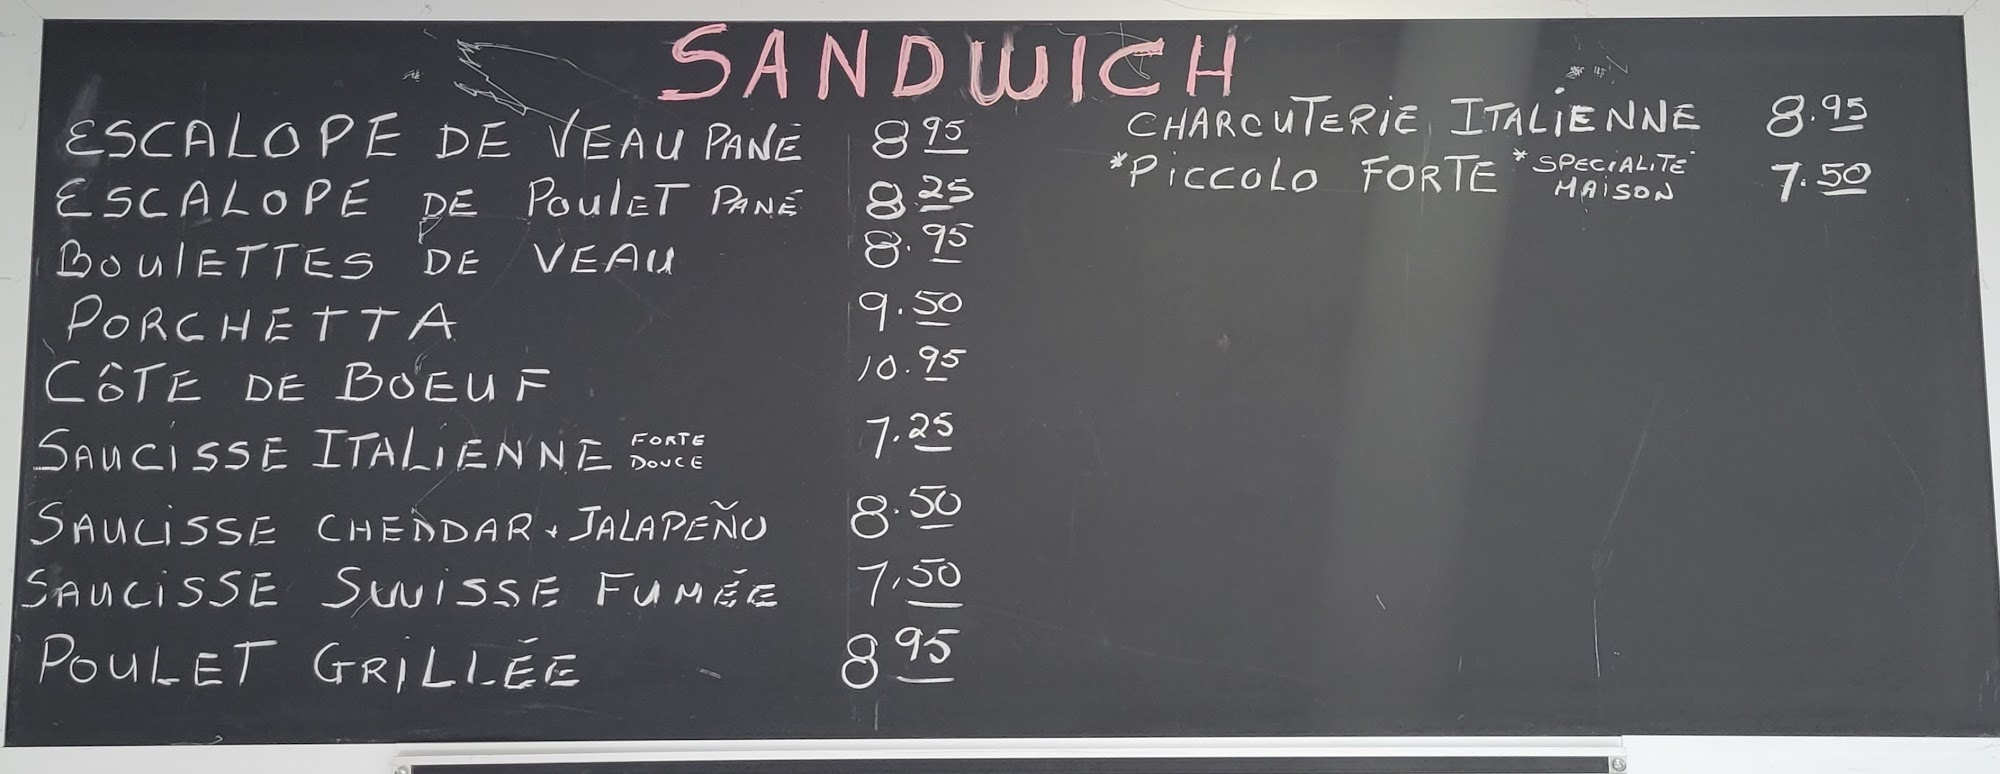 SANDWICH
ESCALOPE DE VEAU PANÉ 8.95
ESCALOPE DE POULET PANÉ 8.25
BOULETTES DE VEAU 8.95
PORCHETTA 9.50
CÔTE DE BOEUF 10.95
SAUCISSE ITALIENNE FORTE DOUCE 7.25
SAUCISSE CHEDDAR + JALAPEÑO 8.50
SAUCISSE SUUISSE FUMÉE 7.50
POULET GRILLÉE 8.95
CHARCUTERIE ITALIENNE 8.95
*PICCOLO FORTE * SPECIALITÉ MAISON 7.50